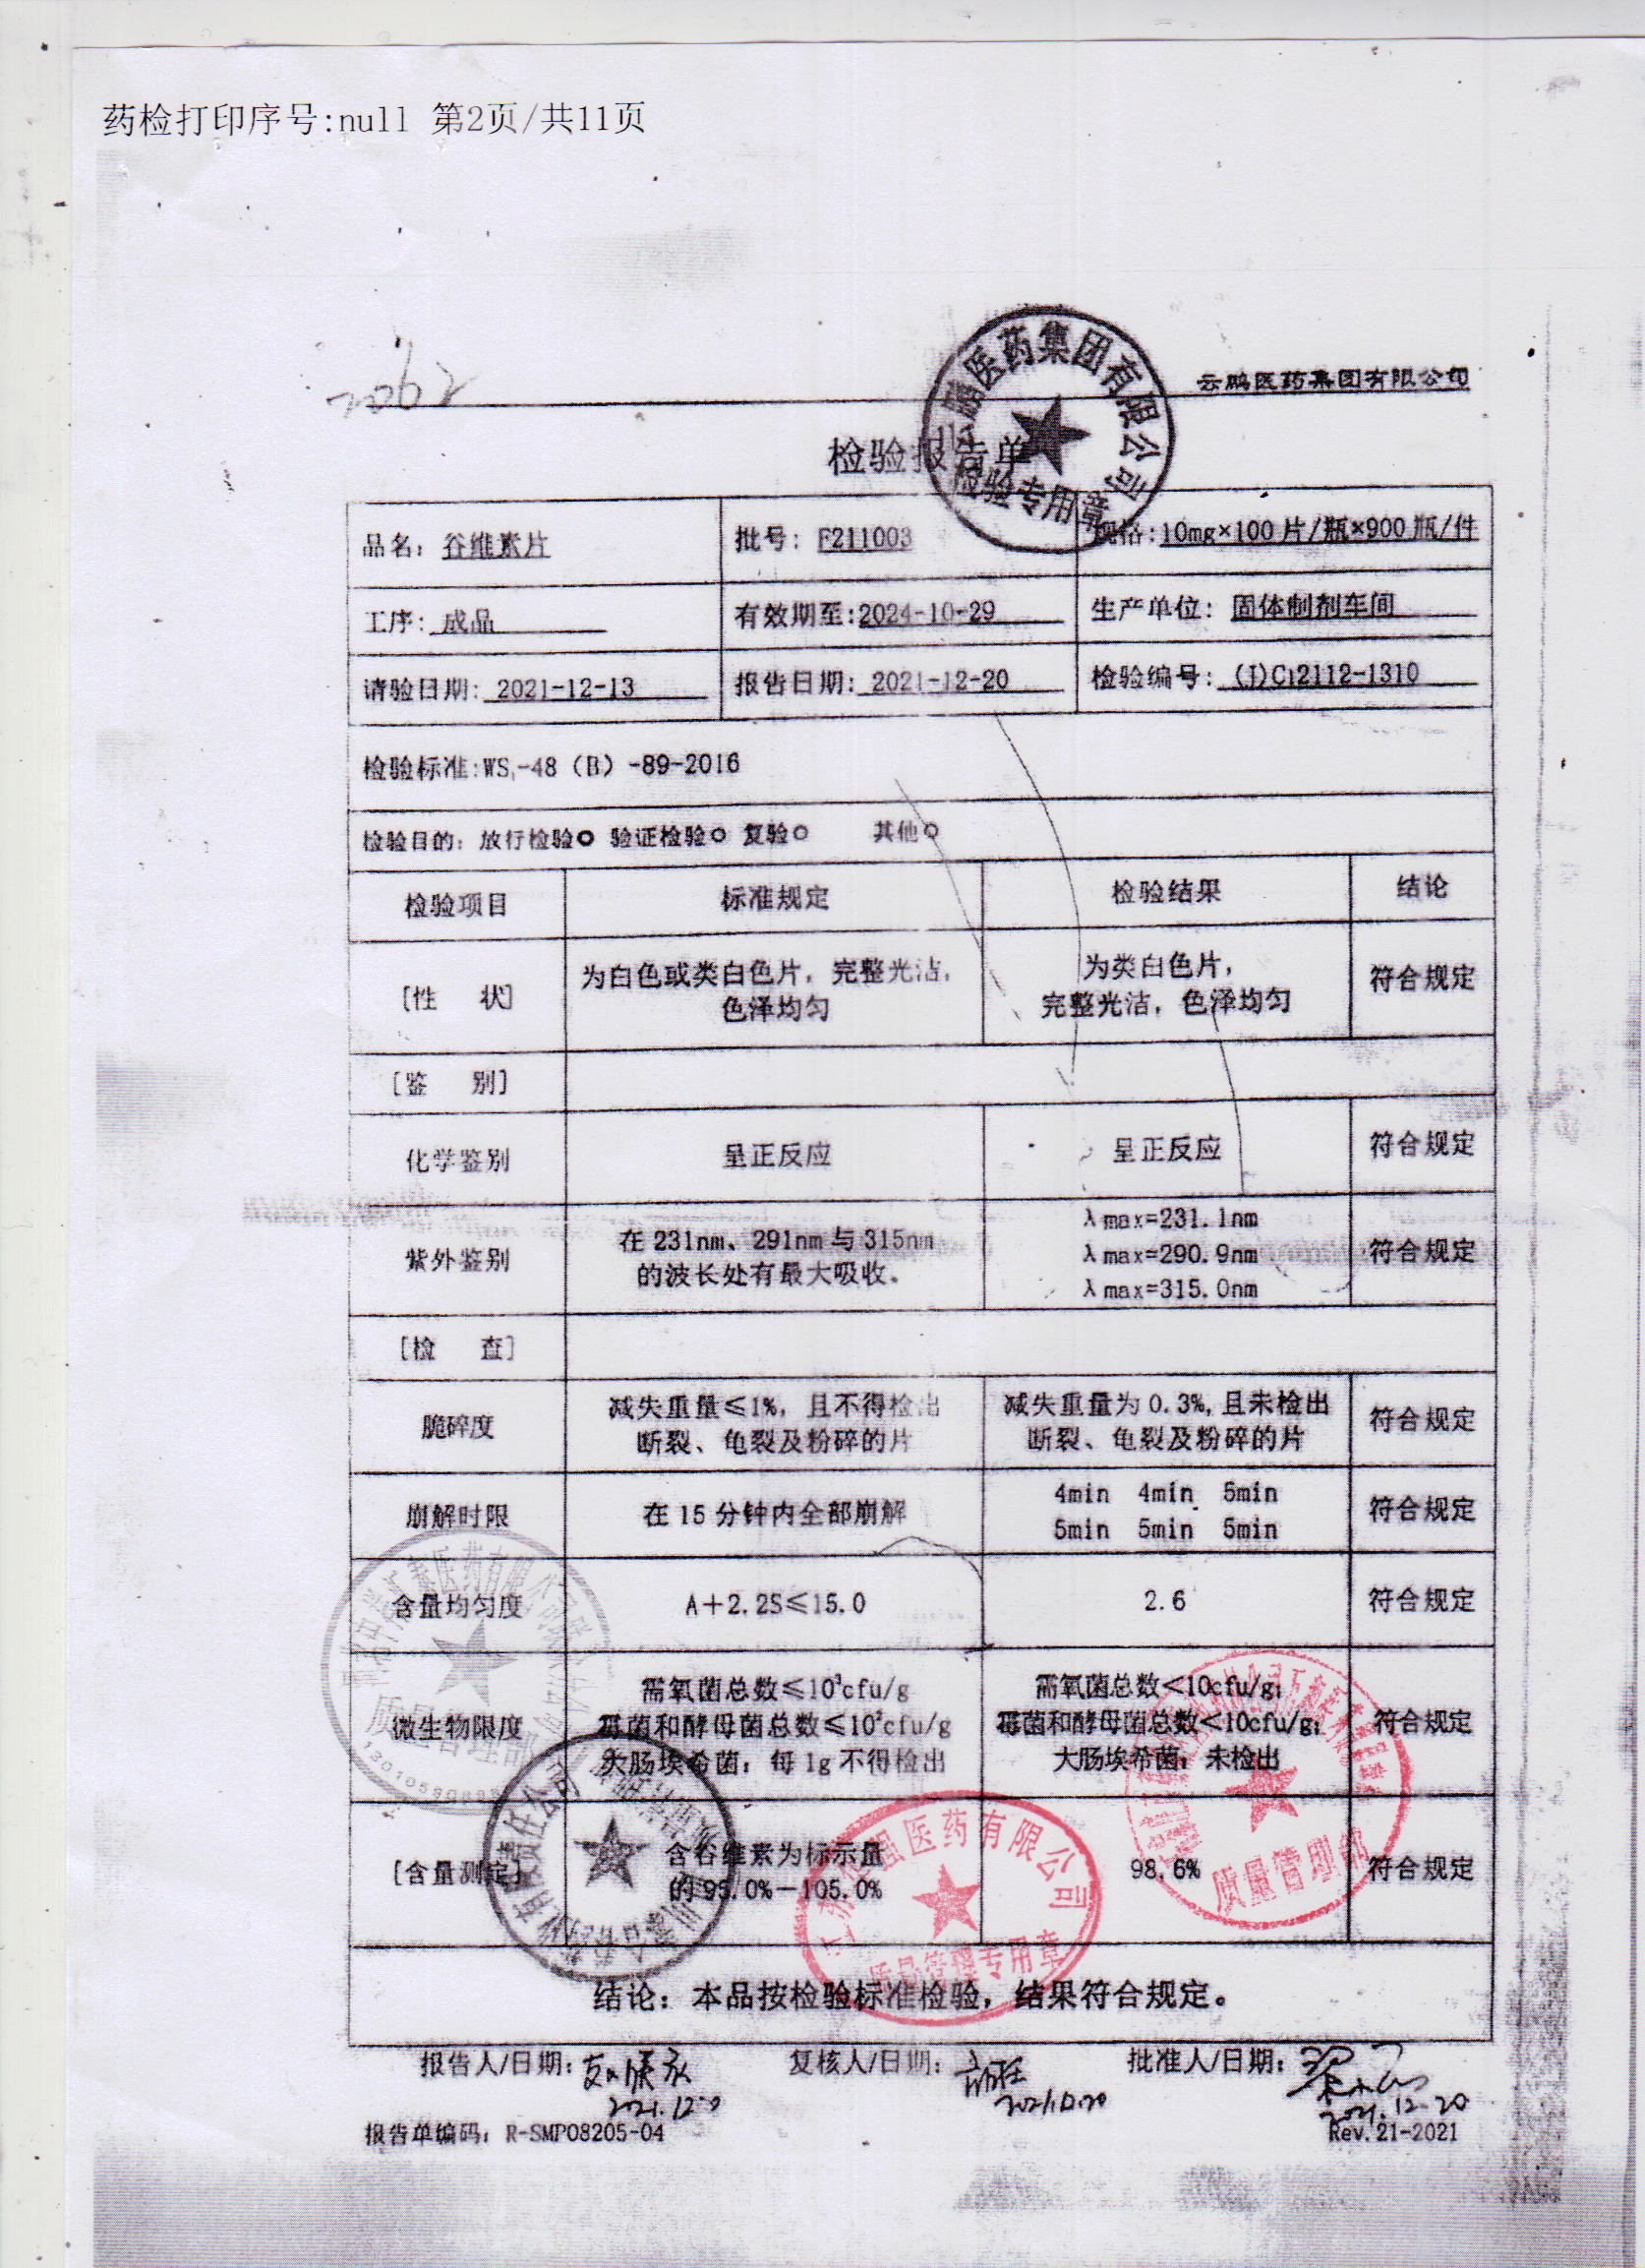 药检打印序号:null 第2页/共11页
2062
云鹏医药集团有限公司
云鹏医药集团有限公司
检验专用章
检验报告单
品名：谷维素片 批号：F211003 规格:10mg×100片/瓶×900瓶/件
工序：成品 有效期至:2024-10-29 生产单位：固体制剂车间
请验日期：2021-12-13 报告日期：2021-12-20 检验编号：(J)C12112-1310
检验标准:WS₁-48（B）-89-2016
检验目的：放行检验○ 验证检验○ 复验○ 其他○
检验项目 标准规定 检验结果 结论
[性 状] 为白色或类白色片，完整光洁，色泽均匀 为类白色片，完整光洁，色泽均匀 符合规定
[鉴 别]
化学鉴别 呈正反应 呈正反应 符合规定
紫外鉴别 在231nm、291nm与315nm的波长处有最大吸收。 λmax=231.1nm λmax=290.9nm λmax=315.0nm 符合规定
[检 查]
脆碎度 减失重量≤1%，且不得检出断裂、龟裂及粉碎的片 减失重量为0.3%,且未检出断裂、龟裂及粉碎的片 符合规定
崩解时限 在15分钟内全部崩解 4min 4min 5min 5min 5min 5min 符合规定
含量均匀度 A＋2.2S≤15.0 2.6 符合规定
微生物限度 需氧菌总数≤10³cfu/g 霉菌和酵母菌总数≤10²cfu/g 大肠埃希菌：每1g不得检出 需氧菌总数<10cfu/g; 霉菌和酵母菌总数<10cfu/g; 大肠埃希菌：未检出 符合规定
[含量测定] 含谷维素为标示量的95.0%－105.0% 98.6% 符合规定
质量管理部
医药有限公司
质量管理专用章
结论：本品按检验标准检验，结果符合规定。
报告人/日期： 复核人/日期： 批准人/日期：
2021.12.20
报告单编码：R-SMP08205-04 Rev.21-2021